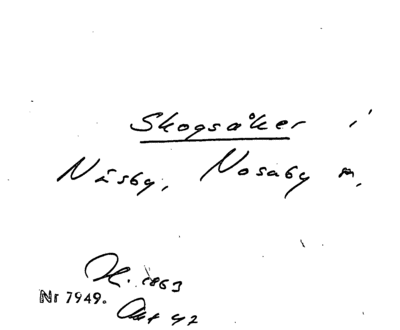 Skogsåker i
Näsby, Nosaby sn,
H. 1863
Nr 7949.
Akt 42